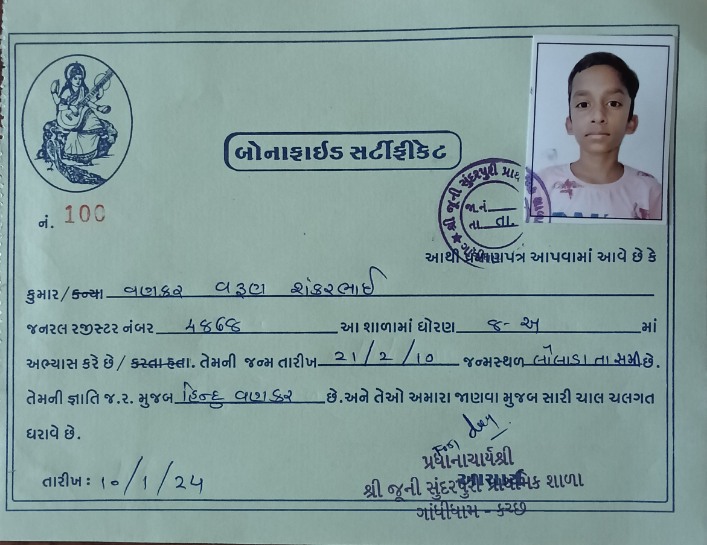 બોનાફાઈડ સર્ટીફીકેટ
નં. 100
શ્રી જૂની સુંદરપુરી પ્રાથ
જા.નં.
તા. તા.
આથી પ્રમાણપત્ર આપવામાં આવે છે કે
કુમાર / કન્યા વણકર વરૂણ શંકરભાઈ
જનરલ રજીસ્ટર નંબર 4868 આ શાળામાં ધોરણ ૭- અ માં
અભ્યાસ કરે છે / કરતા હતા. તેમની જન્મ તારીખ 21/2/10 જન્મસ્થળ લોલાડા તા સમી છે.
તેમની જ્ઞાતિ જ.ર. મુજબ હિન્દુ વણકર છે.અને તેઓ અમારા જાણવા મુજબ સારી ચાલ ચલગત
ધરાવે છે.
પ્રધાનાચાર્યશ્રી
તારીખ : ૧૦/1/24
શ્રી જૂની સુંદરપુરી પ્રાથમિક શાળા
ગાંધીધામ - કચ્છ